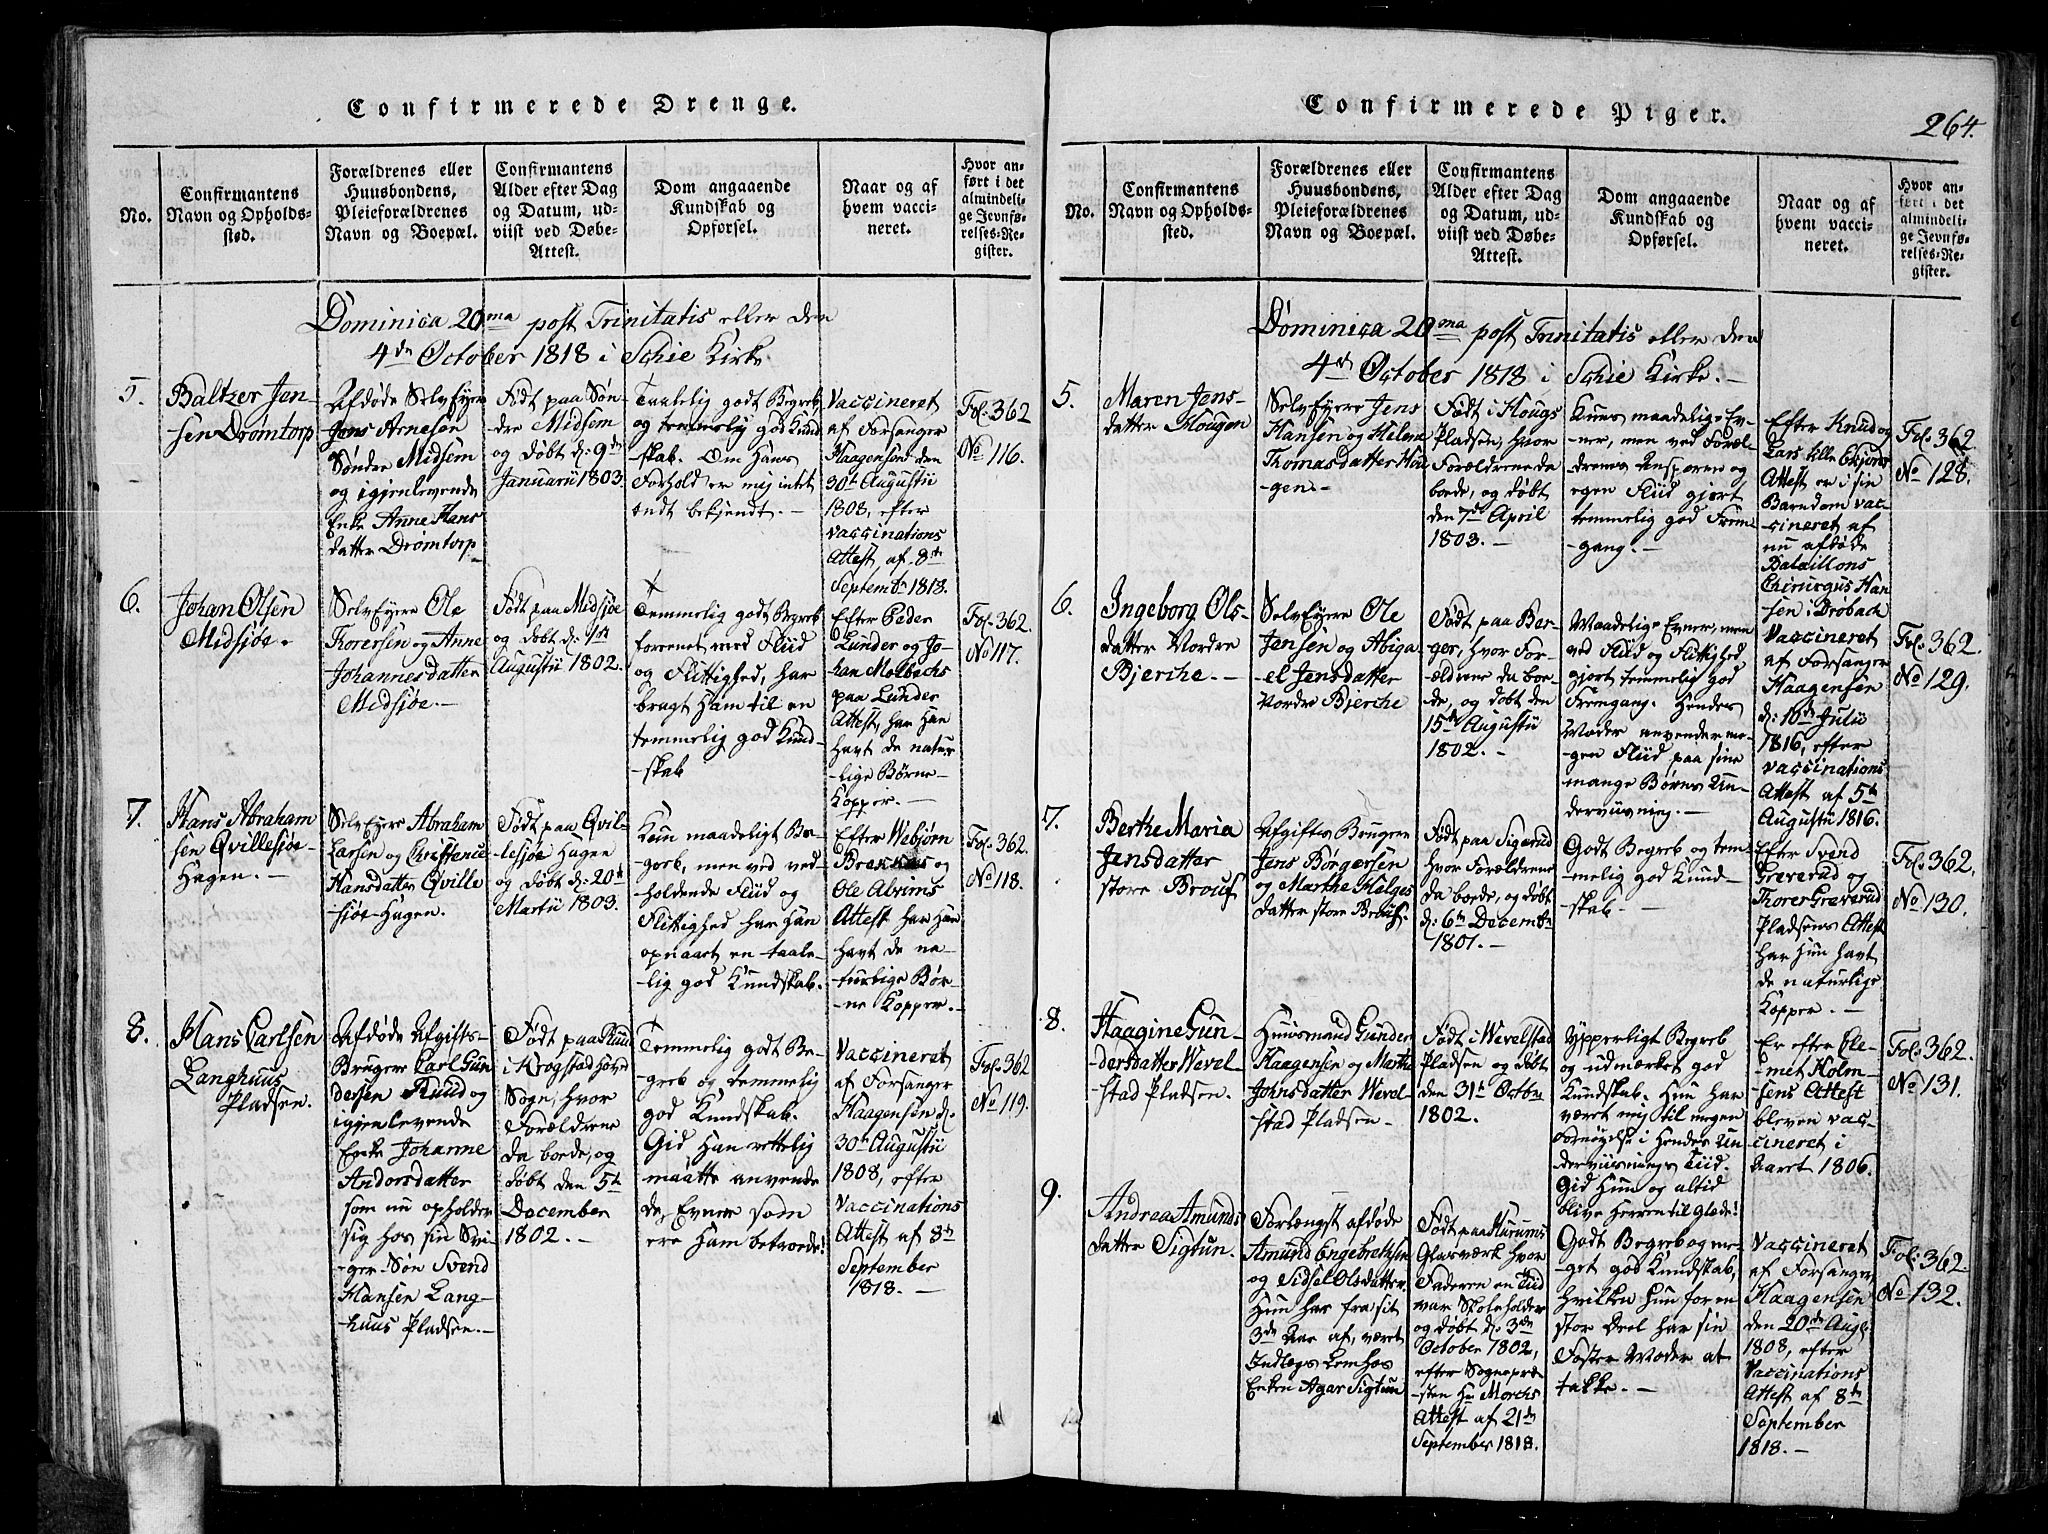 Confirmerede Drenge.
No.
Confirmantens
Navn og Opholds-
sted.
Forældrenes eller
Huusbondens,
Pleieforældrenes
Navn og Boepæl.
Confirmantens
Alder efter Dag
og Datum, ud-
viist ved Døbe-
Attest.
Dom angaaende
Kundskab og
Opførsel.
Naar og af
hvem vacci-
neret.
Hvor an-
ført i det
almindeli-
ge Jevnfø-
relses-Re-
gister.
Dominica 20ma post Trinitatis eller den
4de October 1818 i Schie Kirke.
5.
Baltzer Jen-
sen Drømtorp
Afdøde Selvejer
Jens Arnesen
Søndre Midsem
og igjenlevende
Enke Anne Hans
datter Drømtorp
Født paa Søn-
dre Midsem
og døbt d: 9de
Januarii 1803.
Taalelig godt Begreb,
og temmelig god Kund
skab. Om Hans
Forhold er mig intet
ondt bekjendt. -
Vaccineret
af Forsanger
Haagensen den
30te Augustii
1808, efter
Vaccinations
Attest af 8de
Septembr 1818.
Fol: 362
No 116.
6.
Johan Olsen
Midsjøe.
Selvejere Ole
Torersen og Anne
Johannesdatter
Midsjøe. -
Født paa Midsjøe
og døbt d: 1ste
Augustii 1802.
Temmelig godt Begreb
forenet med Fliid
og Flittighed, har
bragt Ham til en
temmelig god Kund-
-skab
Efter Peder
Lunder og Jo-
han Molbechs
paa Lunder
Attest, har Han
havt de natur
-lige Børne-
Kopper. -
Fol: 362.
No 117.
7.
Hans Abraham
sen Qvillesjøe-
Hagen. -
Selvejere Abraham
Larsen og Christence
Hansdatter Qville
-sjøe-Hagen.
Født paa Qvil-
lesjøe Hagen
og døbt d: 20de
Martii 1803.
Kun maadeligt Be-
greb, men ved ved-
holdende Fliid og
Flittighed har Han
opnaaet en taale-
lig god Kundskab.
Efter Webjørn
Brekkes og
Ole Alrims
Attest har Han
havt de na-
turlige Bør-
ne Kopper. -
Fol: 362.
No 118.
8.
Hans Carlsen
Langhuus
Pladsen.
Afdøde Afgifts-
Bruger Carl Gun
dersen Ruud og
igjenlevende
Enke Johanne
Andersdatter
som nu opholder
sig hos sin Svi-
ger-Søn Svend
Hansen Lang-
huus Pladsen. -
Født paa Ruud
i Krogstad Hoved
Sogn, hvor
Forældrene
da boede, og
døbt den 5te
December
1802. -
Temmelig godt Be-
greb og temmelig
god Kundskab.
Gid Han rettelig
maatte anvende
de Evner som
ere Ham betroede!
Vaccineret
af Forsanger
Haagensen d:
30te Augustii
1808, efter
Vaccinations
Attest af 8de
September
1818. -
Fol: 362
No 119.
Confirmerede Piger.
264.
No.
Confirmantens
Navn og Opholds-
sted.
Forældrenes eller
Huusbondens,
Pleieforældrenes
Navn og Boepæl.
Confirmantens
Alder efter Dag
og Datum, ud-
viist ved Døbe-
Attest.
Dom angaaende
Kundskab og
Opførsel.
Naar og af
hvem vacci-
neret.
Hvor an-
ført i det
almindeli-
ge Jevnfø-
relses-Re-
gister.
Dominica 20ma post Trinitatis eller den
4de October 1818 i Schie Kirke. -
5.
Maren Jens-
datter Hougen
Selvejere Jens
Hansen og Helene
Thomasdatter Hou
-gen. -
Født i Hougs
Pladsen, hvor
Forældrene da
boede, og døbt
den 7de April
1803. -
Kuns maadelige Ev-
ner, men ved Foræl-
drenes Ansporen og
egen Fliid gjort
temmelig god Frem-
-gang. -
Efter Knud og
Lars lille Ekjords
Attest er i sin
Barndom vac-
cineret af
nu afdøde
Bataillons
Chirurgus Han
sen i Drøbach
Fol: 362
No 128.
6.
Ingeborg Ols-
datter Nordre
Bjerche. -
Selvejere Ole
Jensen og Abiga
el Jensdatter
Nordre Bjerche
Født paa Ber-
ger, hvor For-
ældrene da boe-
de, og døbt den
15de Augustii
1802. -
Maadelige Evner, men
ved Fliid og Flittighed
gjort temmelig god
Fremgang. Hendes
Moder anvender me-
gen Fliid paa sine
mange Børns Un-
derviisning. -
Vaccineret
af Forsanger
Haagensen
d: 10de Julii
1816, efter
Vaccinations
Attest af 5te
Augustii 1816.
Fol: 362.
No 129.
7.
Berthe Maria
Jensdatter
store Brous
Afgifts Brugeren
Jens Børgersen
og Marthe Helges
datter store Brous.
Født paa Sigerud
hvor Forældrene
da boede, og døbt
d: 6te Decembr
1801. -
Godt Begreb og tem-
melig god Kund-
skab. -
Efter Svend
Greverud og
Thorer Greverud
Pladsens Attest
har Hun havt
de naturlige
Kopper. -
Fol: 362.
No 130.
8.
Haagine Gun-
dersdatter Wevel-
stad Pladsen.
Huusmand Gunder
Haagensen og Marthe
Johnsdatter Wevel-
stad Pladsen. -
Født i Wevelstad
Pladsen og døbt
den 31te Octobr
1802.
Ypperligt Begreb
og udmærket god
Kundskab. Hun har
været mig til megen
Fornøyelse i Hendes Un
derviisnings Tiid.
Gid Hun og altid
blive Herren til Glæde!
Er efter Cle-
met Holm-
sens Attest
bleven vac-
cineret i
Aaret 1806.
Fol: 362.
No 131.
9.
Andrea Amunds
datter Sigtun.
Forlængst afdøde
Amund Engebrethsen
og Sidsel Olsdatter.
Hun har fra sit
3de Aar af, været
Indlægs Lem hos
Enken Agar Sigtun
Født paa Hurums
Glasværk hvor
Faderen en Tiid
var Skoleholder
og døbt d: 3de
October 1802,
efter Sognepræ-
sten Hr Morchs
Attest af 21de
September 1818.
Godt Begreb og me-
get god Kundskab,
hvilken Hun for en
stor Deel har sin
Foster Moder at
takke. -
Vaccineret
af Forsanger
Haagensen
den 20de Aug:
1808, efter
Vaccinations
Attest af 8de
September
1818. -
Fol: 362.
No 132.